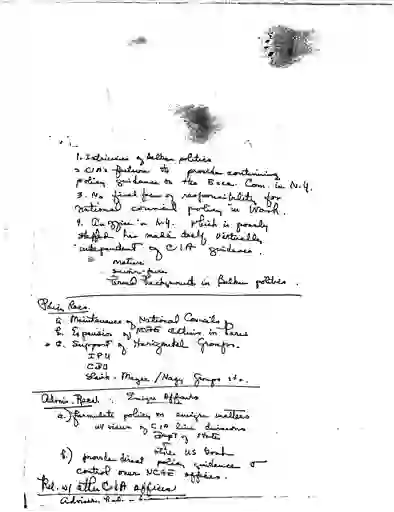 1. Intricacies of Balkan politics
2. CIA's failure to provide continuing
policy guidance to the Exec. Com. in N.Y.
3. No fixed focus of responsibility for
national council policy in Wash.
4. An office in N.Y. which is poorly
staffed has made itself virtually
independent of CIA guidance.
mature
broad background in Balkan politics.
Policy Recs.
a. Maintenance of National Councils
b. Expansion of NCFE activs. in Paris
c. Support of Horizontal Groups.
IPU
CDU
Nagy Groups etc.
Admin. Recs. : Emigre Affairs
a.) formulate policy on emigre matters
in view of CIA line divisions
Dept of State
other US Govt
b.) provide direct policy guidance &
control over NCFE offices.
Rel. w/ other CIA offices